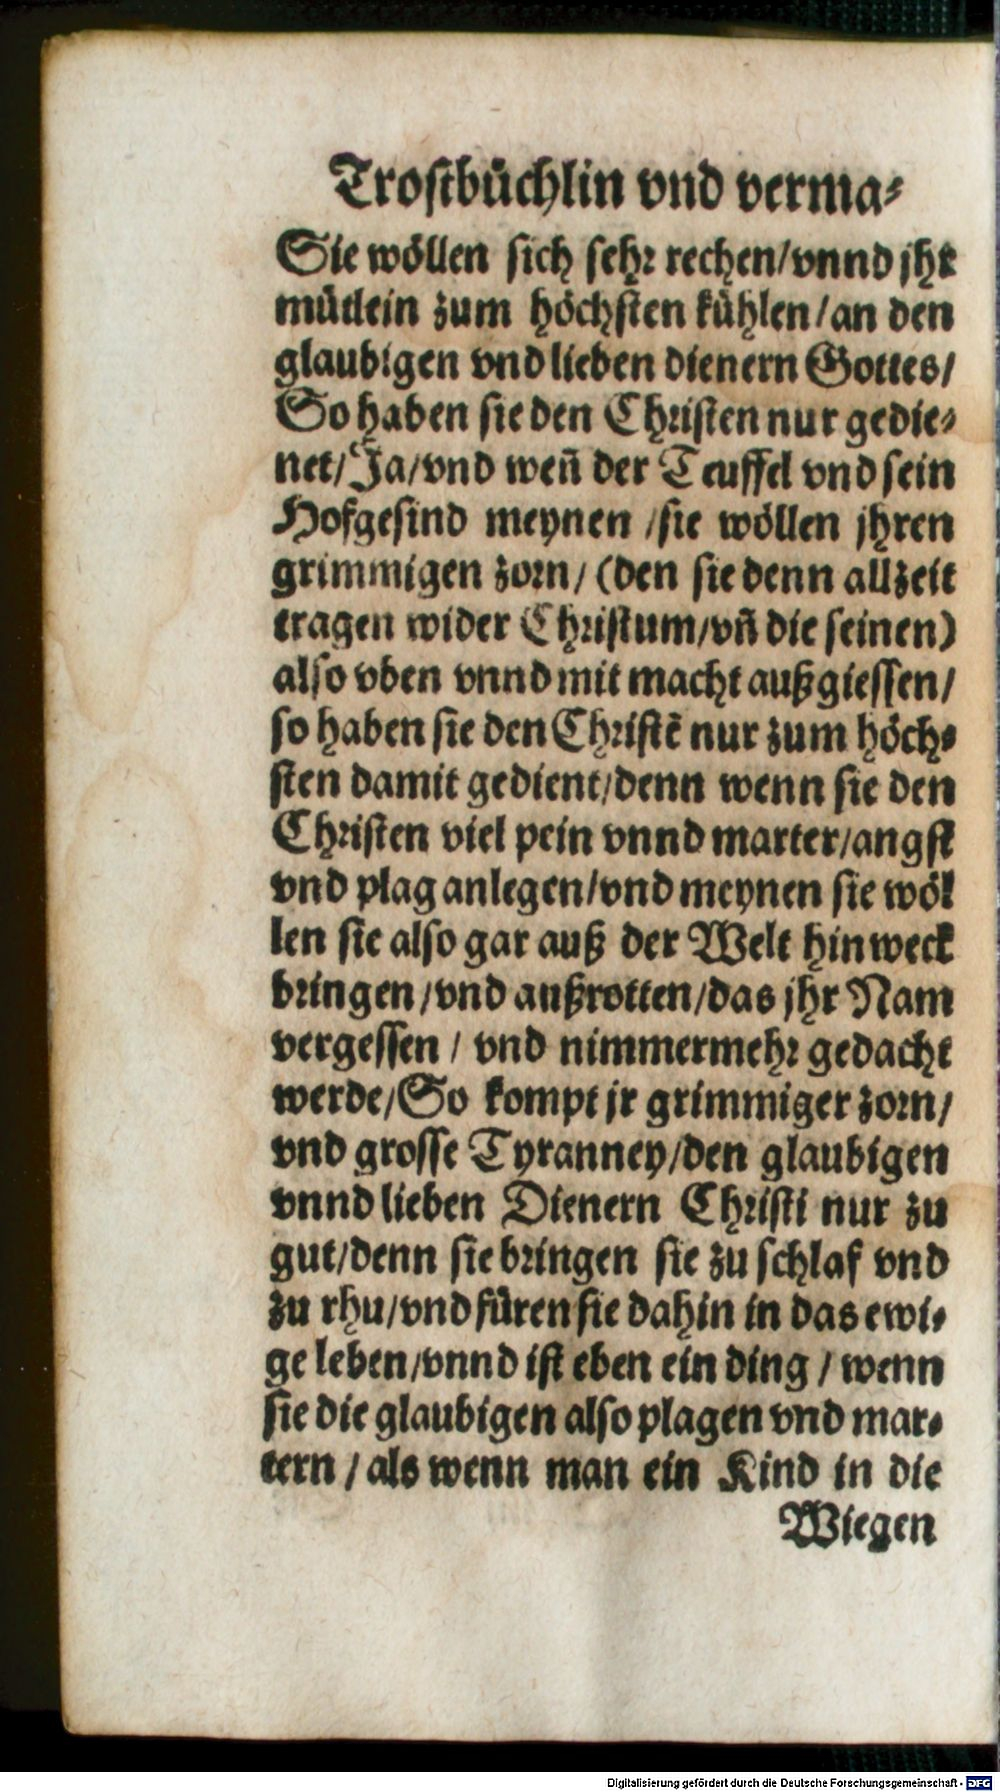 Trostbüchlin vnd verma⸗
Sie wöllen sich sehr rechen/vnnd jhr
mütlein zum höchsten kühlen/an den
glaubigen vnd lieben dienern Gottes/
So haben sie den Christen nur gedie⸗
net/Ja/vnd weñ der Teuffel vnd sein
Hofgesind meynen /sie wöllen jhren
grimmigen zorn/ (den sie denn allzeit
tragen wider Christum/vñ die seinen)
also vben vnnd mit macht außgiessen/
so haben sie den Christē nur zum höch⸗
sten damit gedient/denn wenn sie den
Christen viel pein vnnd marter/angst
vnd plag anlegen/vnd meynen sie wöl
len sie also gar auß der Welt hinweck
bringen/vnd außrotten/das jhr Nam
vergessen / vnd nimmermehr gedacht
werde/So kompt jr grimmiger zorn/
vnd grosse Tyranney/den glaubigen
vnnd lieben Dienern Christi nur zu
gut/denn sie bringen sie zu schlaf vnd
zu rhu/vnd füren sie dahin in das ewi⸗
ge leben/vnnd ist eben ein ding / wenn
sie die glaubigen also plagen vnd mar⸗
tern / als wenn man ein Kind in die
Wiegen
Digitalisierung gefördert durch die Deutsche Forschungsgemeinschaft - DFG